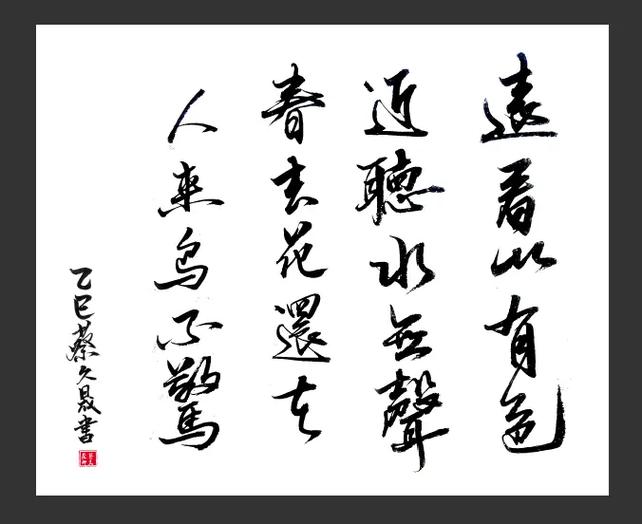 遠看山有色
近聽水無聲
春去花還在
人來鳥不驚
乙巳蔡久晟書